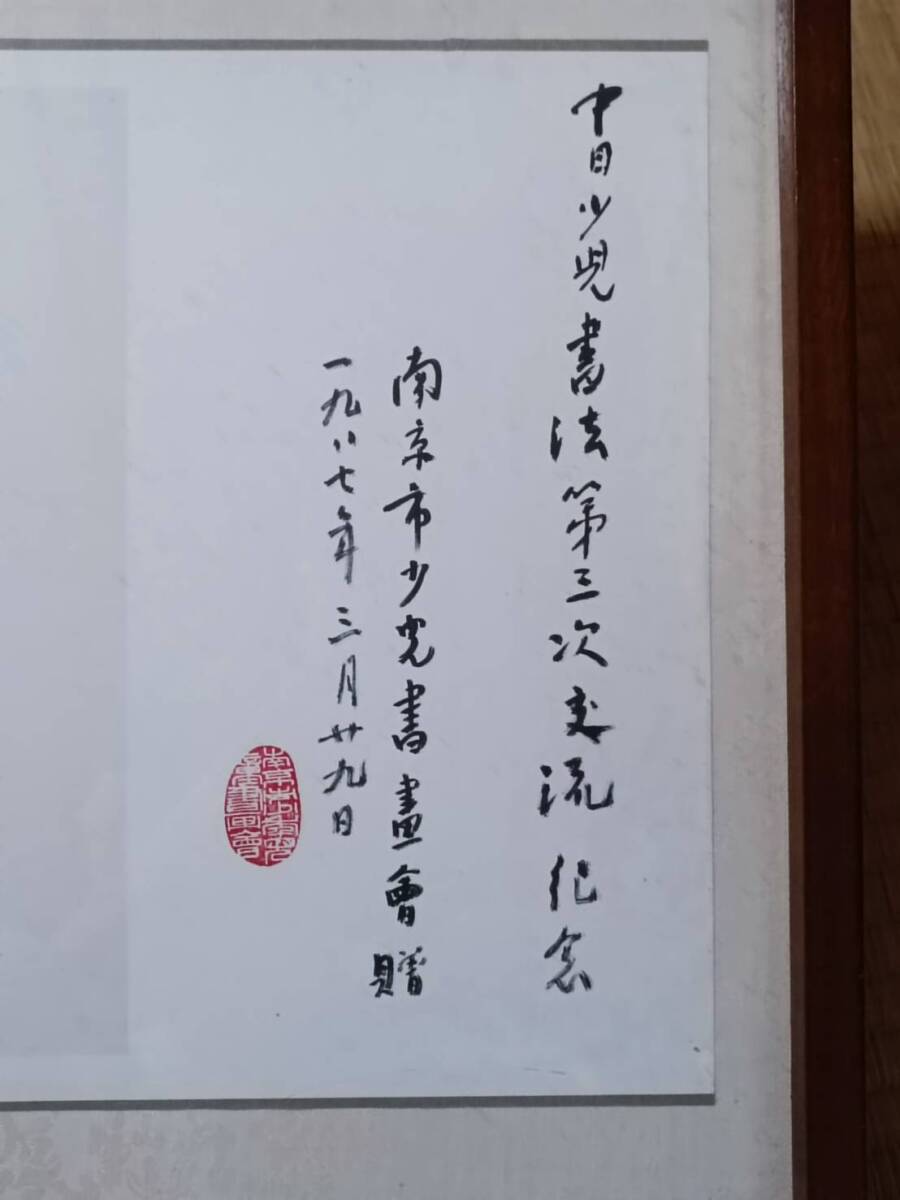 中日少兒書法第三次交流 纪念
南京市少兒書畫會贈
一九八七年三月廿九日
南京市少兒
書畫會